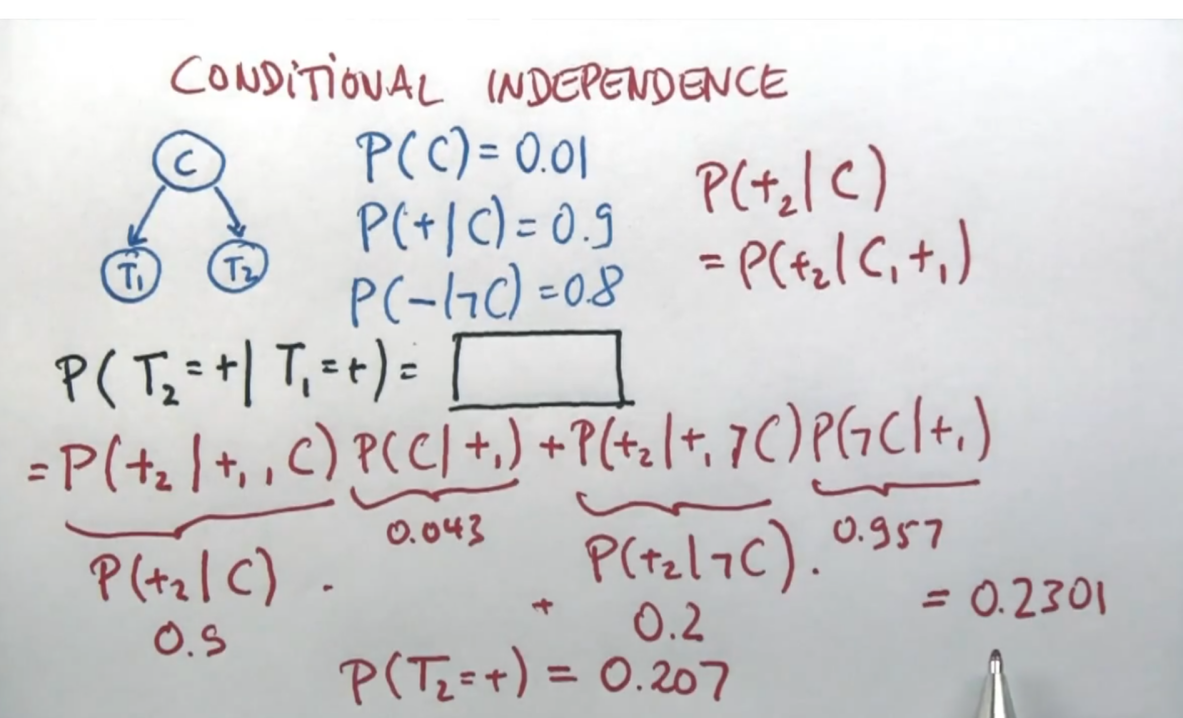 CONDITIONAL INDEPENDENCE
C
T₁ T₂
P(C) = 0.01
P(+|C) = 0.9
P(-|¬C) = 0.8
P(+₂|C)
= P(+₂|C,+₁)
P(T₂=+|T₁=+) =
= P(+₂|+₁,C) P(C|+₁) + P(+₂|+₁ ¬C) P(¬C|+₁)
0.043 0.957
P(+₂|C) · P(+₂|¬C) ·
0.9 + 0.2 = 0.2301
P(T₂=+) = 0.207